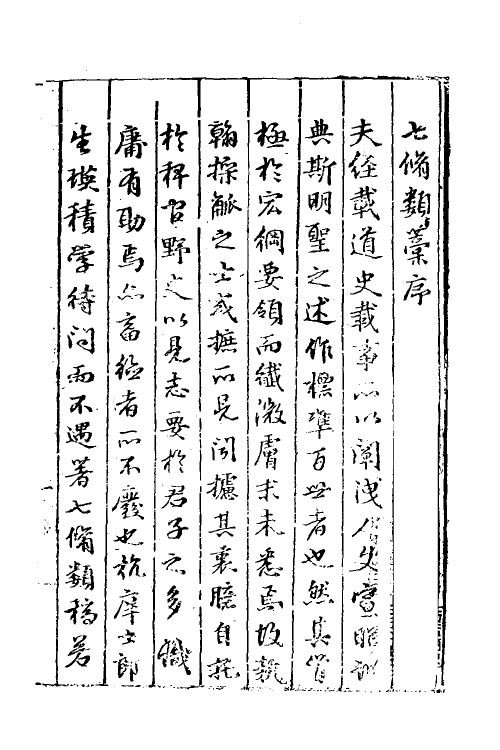 七脩類藁序
夫經載道史載事所以闡洩人文宣昭訓
典斯明聖之述作標準百世者也然其旨
極於宏綱要領而纖微膚末未悉焉故執
翰操觚之士或摭所見聞攄其衷臆自託
於稗官野史以見志要於君子之多識
庸有助焉亦畜德者所不廢也杭庠士郎
生瑛積學待問而不遇著七脩類稿若